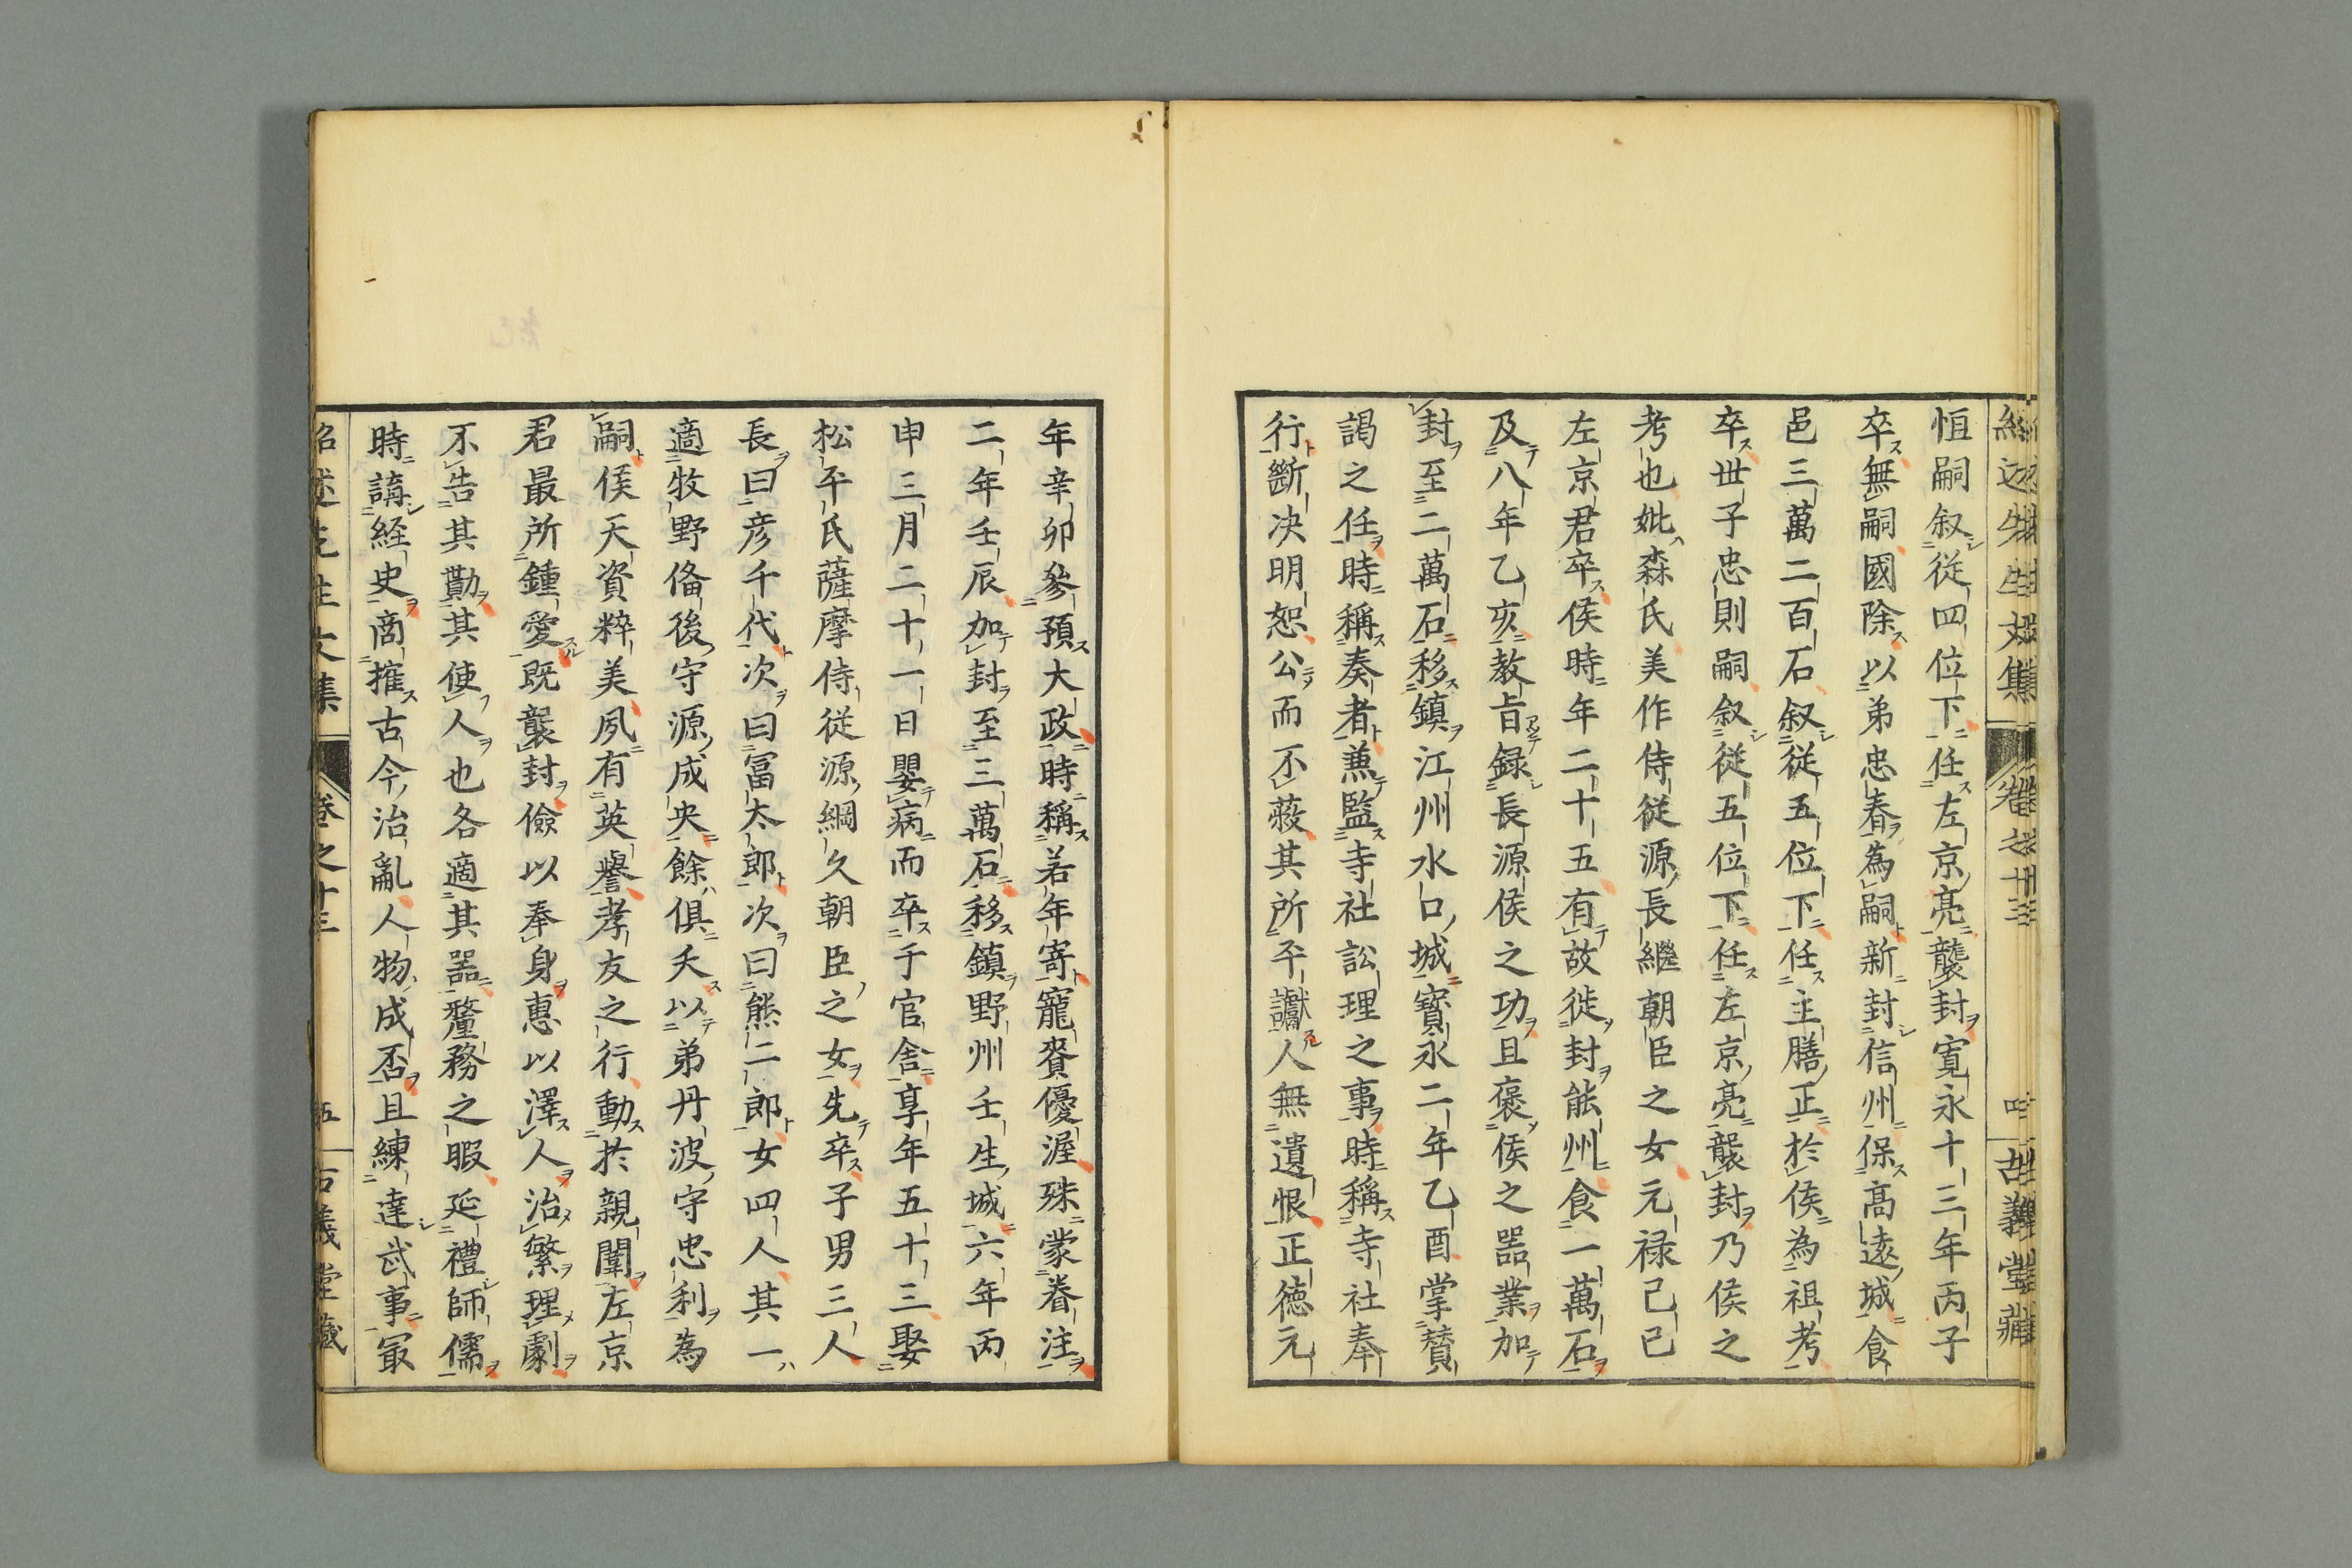 恒嗣叙從四位下任左京亮襲封寛永十三年丙子
卒無嗣國除以弟忠春為嗣新封信州保高遠城食
邑三萬二百石叙從五位下任主膳正於侯為祖考
卒世子忠則嗣叙從五位下任左京亮襲封乃侯之
考也妣森氏美作侍從源長繼朝臣之女元禄己巳
左京君卒侯時年二十五有故徙封能州食一萬石
及八年乙亥教旨録長源侯之功且褒侯之器業加
封至二萬石移鎮江州水口城寳永二年乙酉掌賛
謁之任時稱奏者兼監寺社訟理之事時稱寺社奉
行斷决明恕公而不蔽其所平讞人無遺恨正徳元
年辛卯參預大政時稱若年寄寵賚優渥殊蒙眷注
二年壬辰加封至三萬石移鎮野州壬生城六年丙
申三月二十一日嬰病而卒于官舎享年五十三娶
松平氏薩摩侍從源綱久朝臣之女先卒子男三人
長曰彦千代次曰冨太郎次曰熊二郎女四人其一
適牧野備後守源成央餘俱夭以弟丹波守忠利為
嗣侯天資粹美夙有英譽孝友之行動於親闈左京
君最所鍾愛既襲封儉以奉身惠以澤人治繁理劇
不告其勩其使人也各適其器釐務之暇延禮師儒
時講經史商搉古今治亂人物成否且練達武事冣
紹述先生文集 卷之十三 五 古義堂藏